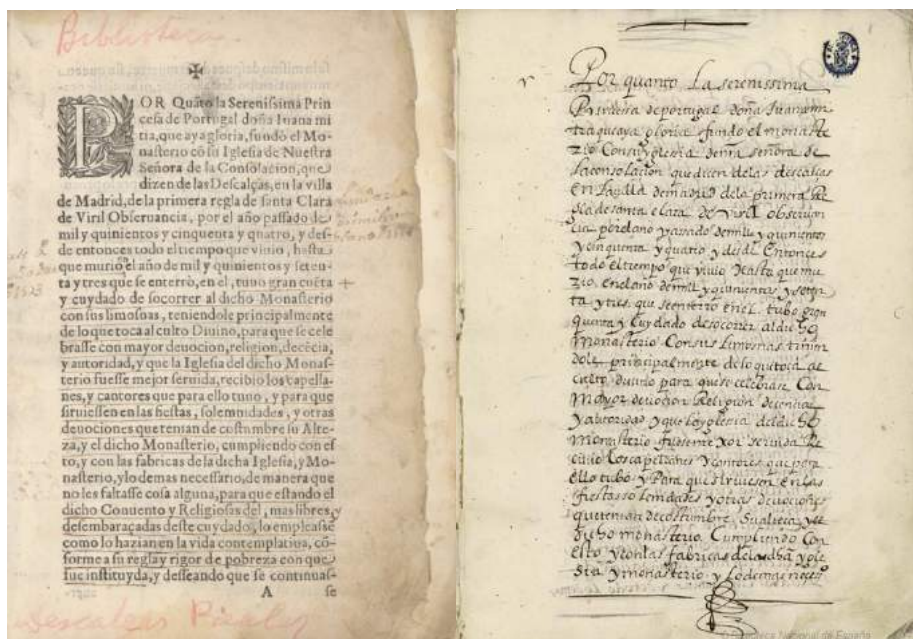 Biblioteca
POR Quãto la Serenissima Prin
cesa de Portugal doña Iuana mi
tia, que aya gloria, fundò el Mo-
nasterio cõ su Iglesia de Nuestra
Señora de la Consolacion, que
dizen de las Descalças, en la villa
de Madrid, de la primera regla de santa Clara
de Viril Obseruancia, por el año passado de
mil y quinientos y cinquenta y quatro, y des-
de entonces todo el tiempo que viuio, hasta
que murio el año de mil y quinientos y seten-
ta y tres que se enterrò, en el, tuuo gran cuẽta
y cuydado de socorrer al dicho Monasterio
con sus limosnas, teniendole principalmente
de lo que toca al culto Diuino, para que se cele
brasse con mayor deuocion, religion, decẽcia,
y autoridad, y que la Iglesia del dicho Monas-
terio fuesse mejor seruida, recibio los capella-
nes, y cantores que para ello tuuo, y para que
siruiessen en las fiestas, solemnidades, y otras
deuociones que tenian de costumbre su Alte-
za, y el dicho Monasterio, cumpliendo con es
to, y con las fabricas de la dicha Iglesia, y Mo-
nasterio, y lo demas necessario, de manera que
no les faltasse cosa alguna, para que estando el
dicho Conuento y Religiosas del, mas libres, y
desembaraçadas deste cuydado, lo empleasse
como lo hazian en la vida contemplatiua, cõ-
forme a su regla y rigor de pobreza con que
fue instituyda, y desseando que se continuas-
A se
Descalzas Reales
Por quanto La serenissima
Princesa de portugal doña Juana mi
tia que aya gloria fundo el monaste
rio Con su yglesia de nra señora de
la consolacion que dicen de las descalças
en la villa de madrid de la primera Re
gla de santa clara de viril observan
cia por el año passado de mill y quinientos
y cinquenta y quatro y desde Entonces
todo el tiempo que vivio hasta que mu
rio en el año de mil y quinientos y seten
ta y tres que se enterro en el tubo gran
quenta y Cuydado de socorrer al dicho
monasterio Con sus limosnas tenien
dole principalmente de lo que toca al
culto divino para que se celebrase Con
mayor devocion Religion decencia
y autoridad y que la yglesia del dicho
monasterio fuese mexor servida Re
civio los capellanes y cantores que para
ello tubo y Para que sirviesen en las
fiestas solenidades y otras devociones
que tenian de costumbre Su alteça y el
dicho monasterio Cumpliendo Con
esto y con las fabricas de la dha ygle
sia y monasterio y Lo demas neces
Biblioteca Nacional de España